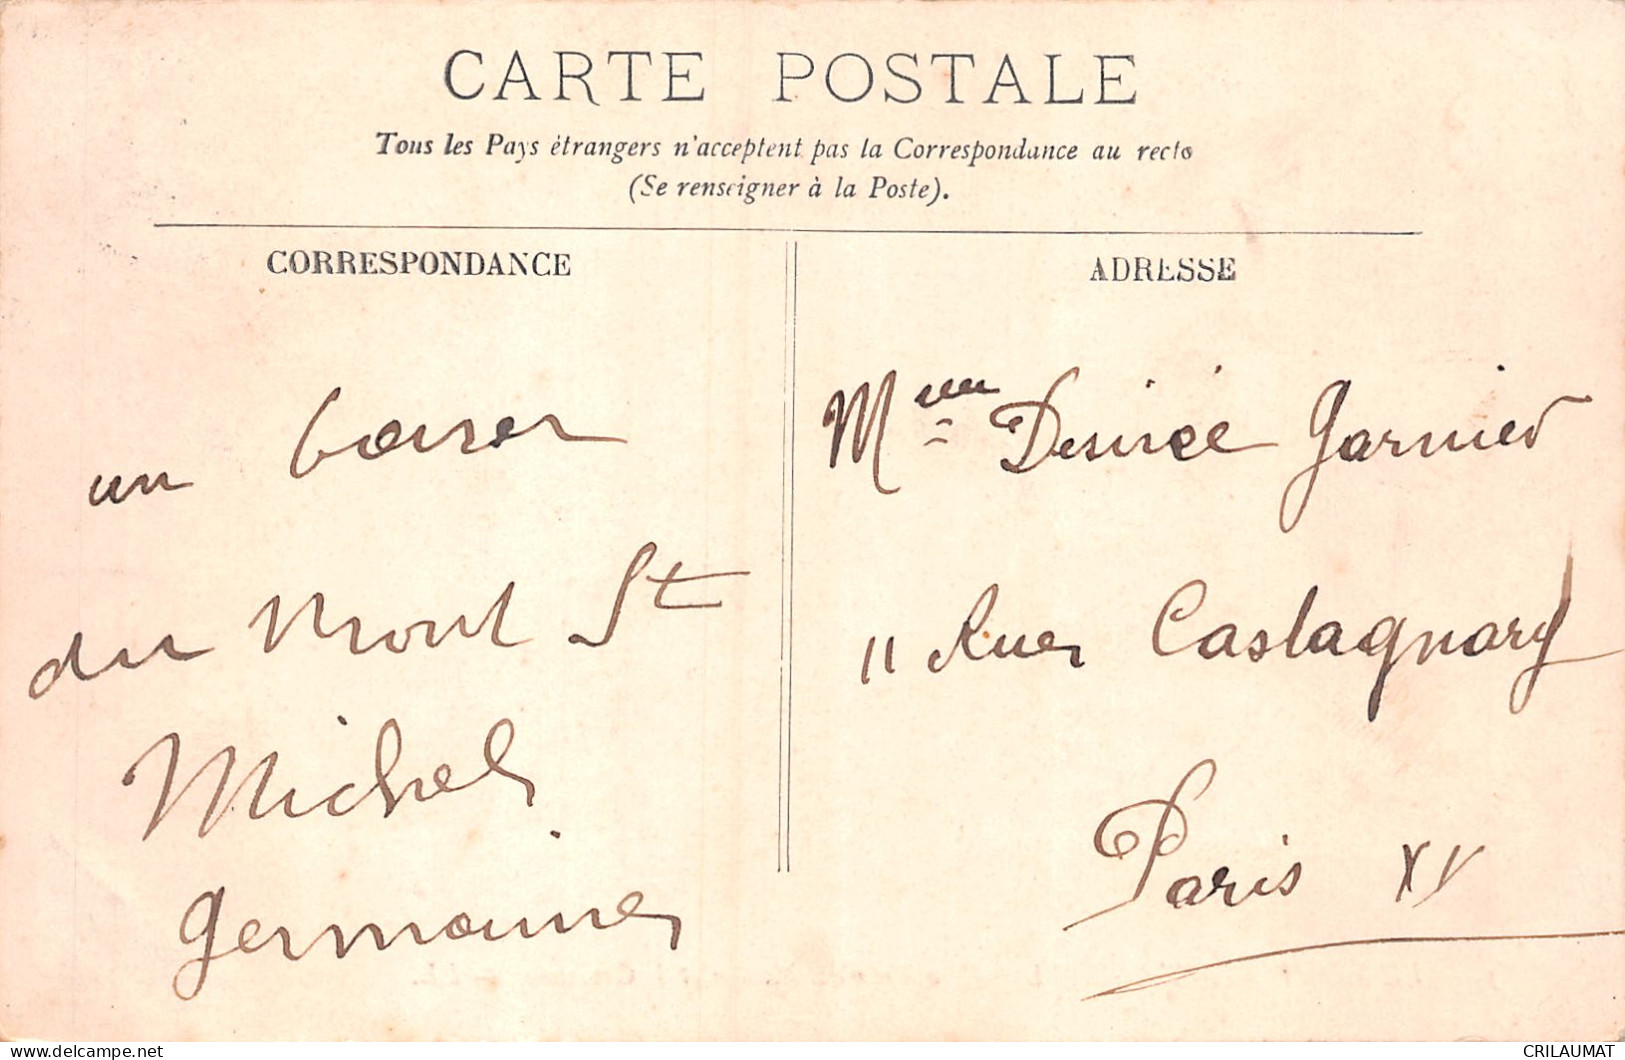 CARTE POSTALE
Tous les Pays étrangers n'acceptent pas la Correspondance au recto
(Se renseigner à la Poste).
CORRESPONDANCE
un baiser
du Mont St
Michel
Germaine
ADRESSE
Desirée Garnier
11 Rue Castagnary
Paris XV
CRILAUMAT